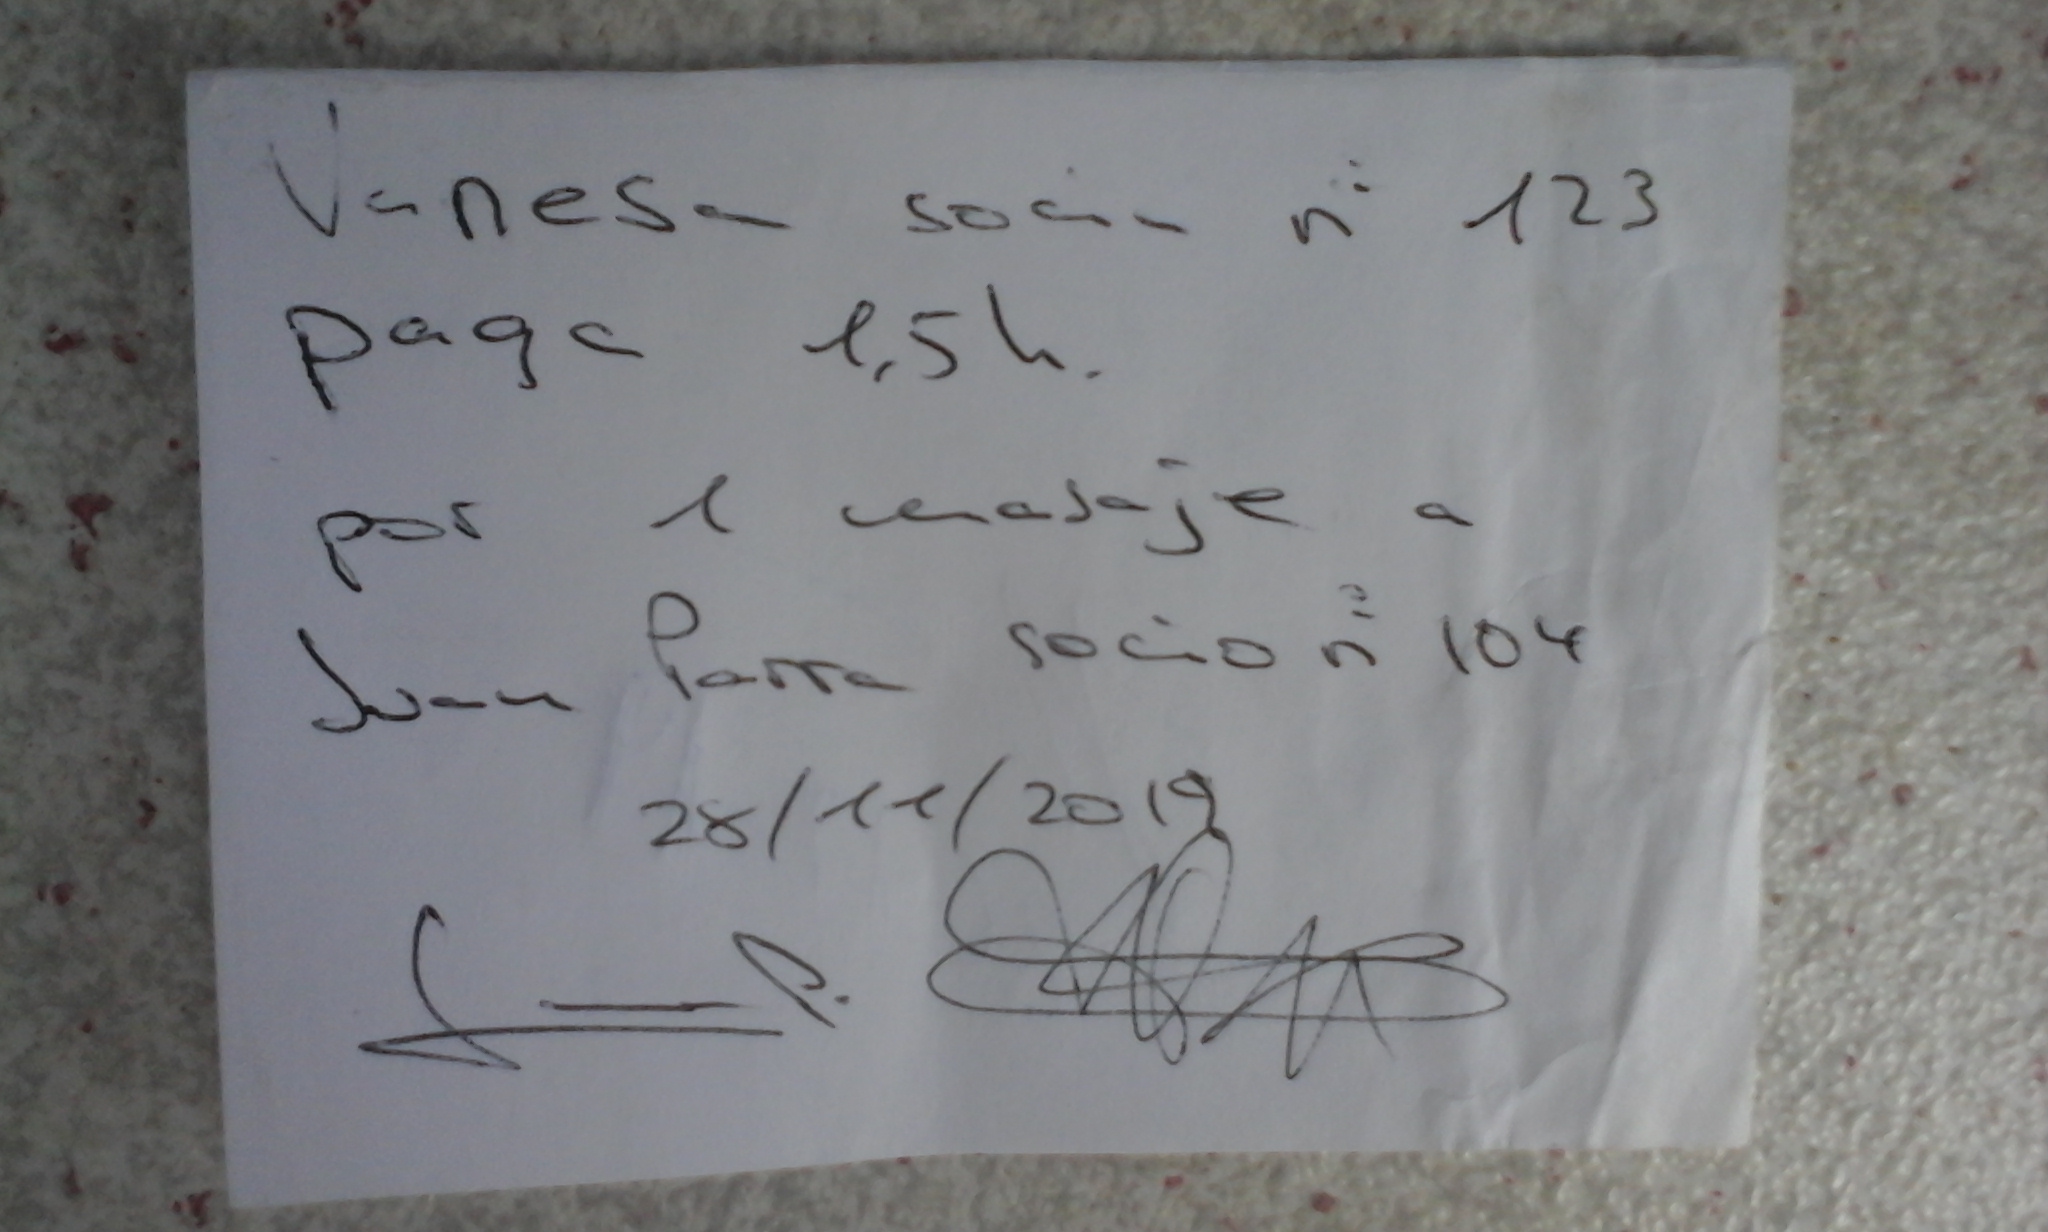 Vanesa socia nº 123
paga 1,5 h.
por 1 masaje a
Juan Parra socio nº 104
28/11/2019